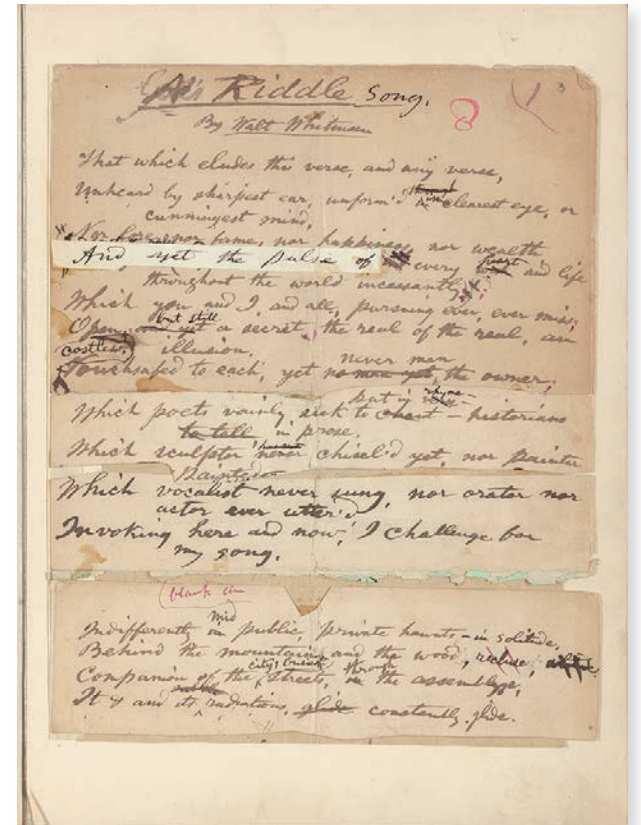 A Riddle Song.
3
By Walt Whitman
That which eludes this verse, and any verse,
Unheard by sharpest ear, unform'd in clearest eye, or
cunningest mind,
Nor lore nor fame, nor happiness nor wealth
And yet the pulse of every heart and life
throughout the world incessantly,
Which you and I, and all, pursuing ever, ever miss;
but still
Open, and yet a secret, the real of the real, an
costless, illusion,
never man
Vouchsafed to each, yet no man yet, the owner;
put in rhyme
Which poets vainly seek to chant – historians
to tell in prose
Which sculptor never chisel'd yet, nor painter
painted
Which vocalist never sung, nor orator nor
actor ever utter'd
Invoking here and now, I challenge for
my song.
blank line
mid
Indifferently in public, private haunts – in solitude,
Behind the mountain and the wood,
city's busiest through
Companion of the streets, in the assemblage,
subtle
It & and its radiations, glide constantly glide.